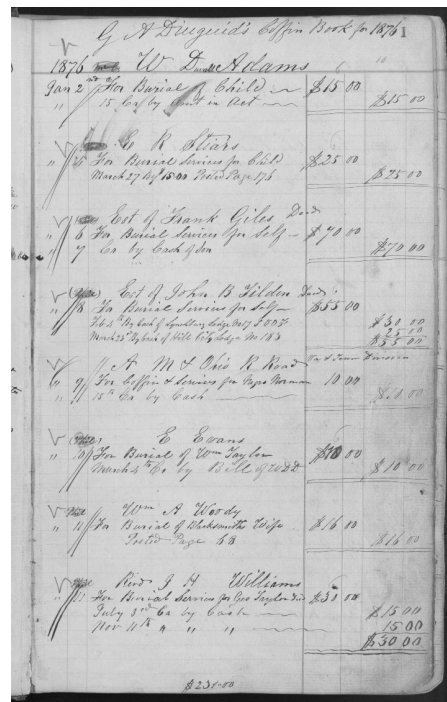 G A Diuguid's Coffin Book for 1876 1
1876 W Duvall Adams
Jan 2nd For Burial of Child $15 00
15 Cr by Amt in Act $15 00
C R Stiars
" 5 For Burial Services for Child $25 00
March 27 By 15 00 Posted Page 176 $25 00
Est of Frank Giles Decd
" 6 For Burial Services for Self $70 00
" 7 Cr by Cash of Son $70 00
Est of John B Tilden Decd
" 8 For Burial Services for Self $55 00
Feb 4th By Cash of Lynchburg Lodge No 17 I O O F $30 00
March 25th By Cash of Hill City Lodge No 183 25 00
$55 00
A M & Ohio R Road Va & Tenn Division
" 9 For Coffin & Services for Negro Norman 10 00
15th Cr by Cash
E Evans
" 10 For Burial of Wm Taylor $10 00
March 4th Cr by Bill of W D D $10 00
Wm A Woody
" 11 For Burial of Wife $16 00
Posted Page 68 $16 00
Revd J H Williams
" 11 For Burial Services for Geo Taylor Decd $30 00
July 3rd Cr by Cash $15 00
Nov 11th " " " 15 00
$30 00
$231.00